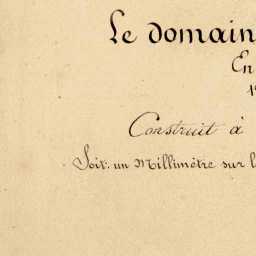 Le domain
En
Construit à
Soit: un Millimètre sur l